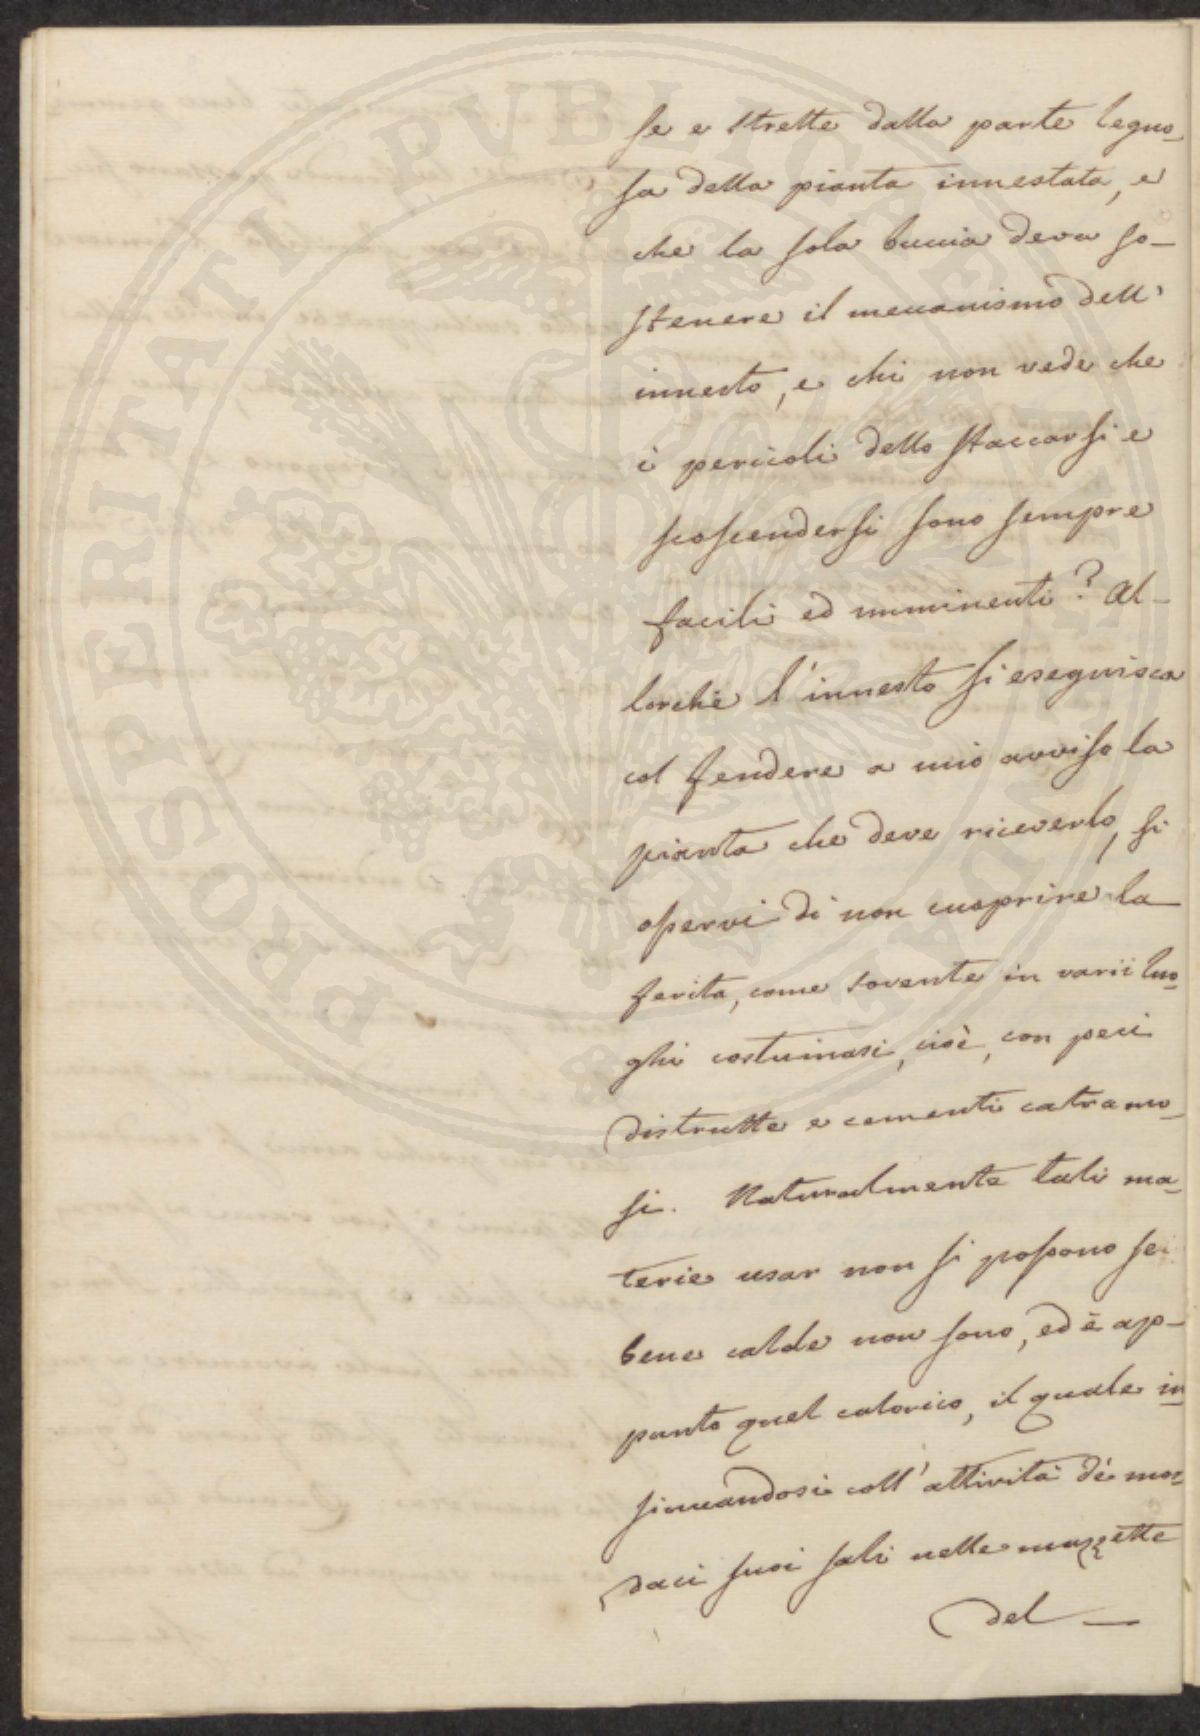 se e strette dalla parte legno-
sa della pianta innestata, e
che la sola buccia deve so-
stenere il meccanismo dell'
innesto, e chi non vede che
i pericoli dello staccarsi e
scoscendersi sono sempre
facili ed imminenti? Al-
lorchè l'innesto si eseguisca
col fendere a mio avviso la
pianta che deve riceverlo, si
osservi di non cuoprire la
ferita, come sovente in varii luo-
ghi costumasi, cioè, con peci
distrutte e cementi catramo-
si. Naturalmente tali ma-
terie usar non si possono se
bene calde non sono, ed è ap-
punto quel calorico, il quale in
sinuandosi coll'attività de' mor-
daci suoi sali nelle mazzette
del —
PROSPERITATI PVBLICAE AVGENDAE